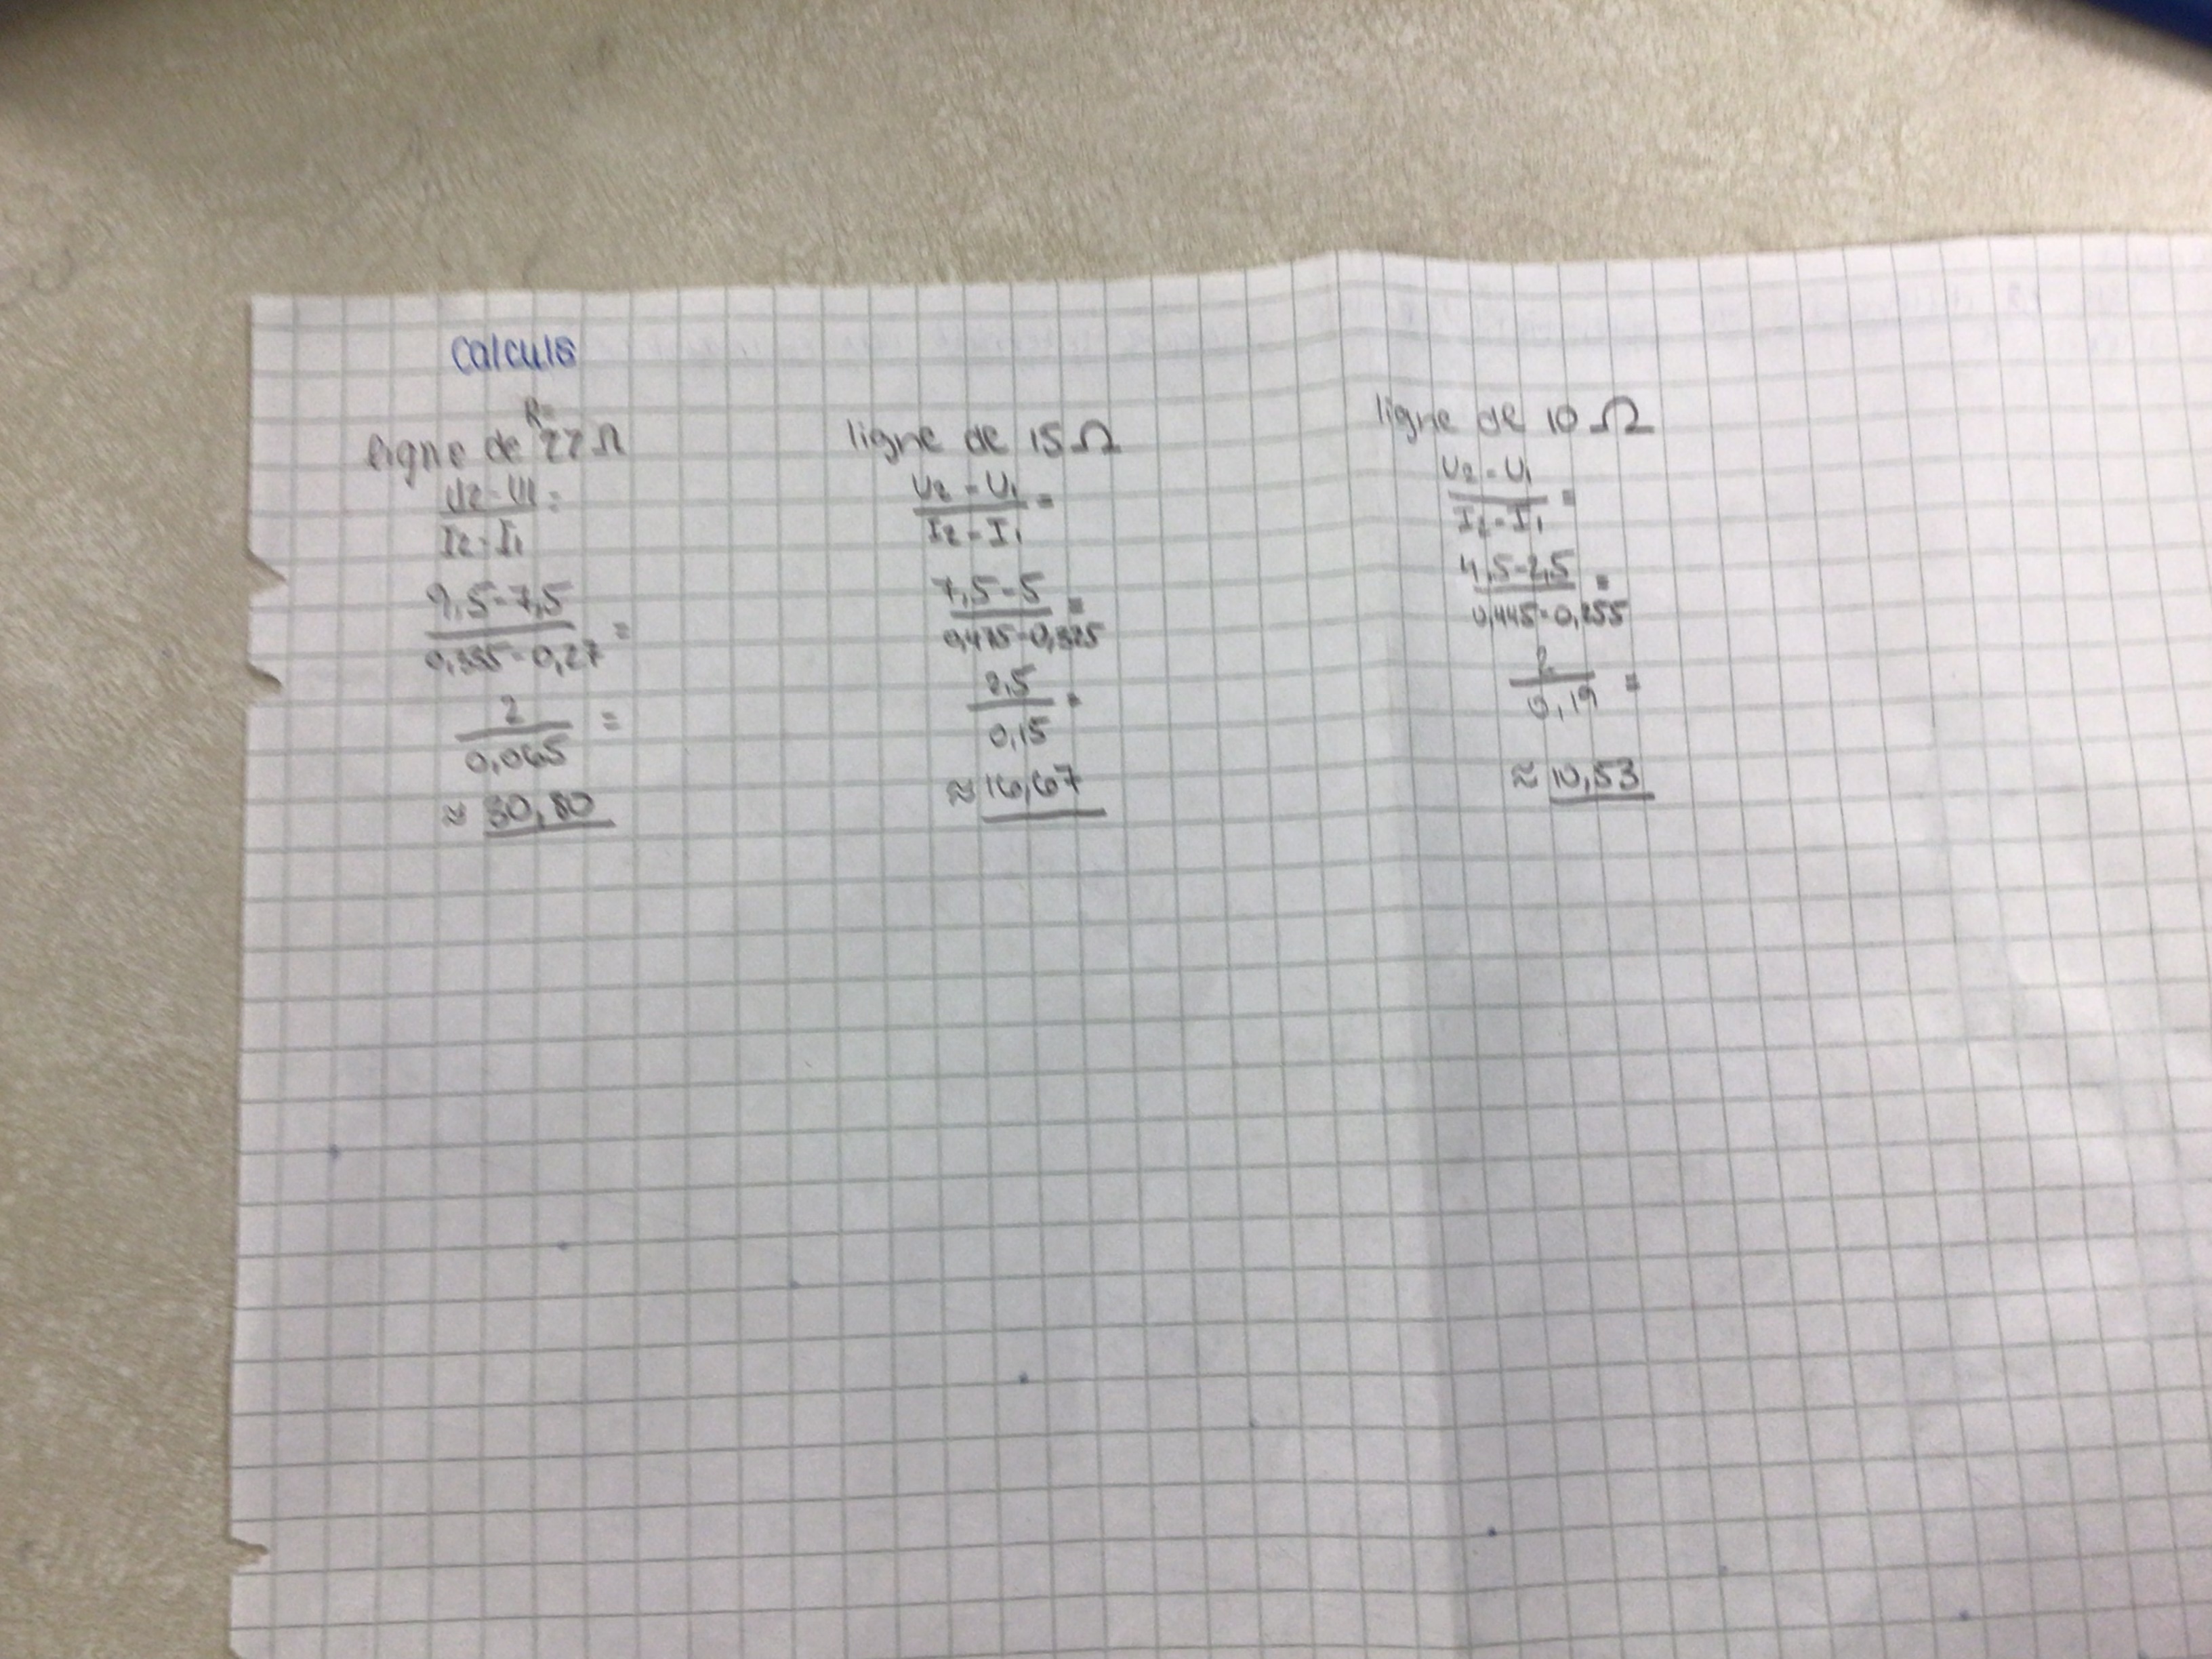 Calculs
R=
ligne de 22 Ω
U2 - U1 =
I2 - I1
9,5 - 7,5 =
0,335 - 0,27
2 =
0,065
≈ 30,80
ligne de 15 Ω
U2 - U1 =
I2 - I1
7,5 - 5 =
0,475 - 0,325
2,5 =
0,15
≈ 16,67
ligne de 10 Ω
U2 - U1 =
I2 - I1
4,5 - 2,5 =
0,445 - 0,255
2 =
0,19
≈ 10,53